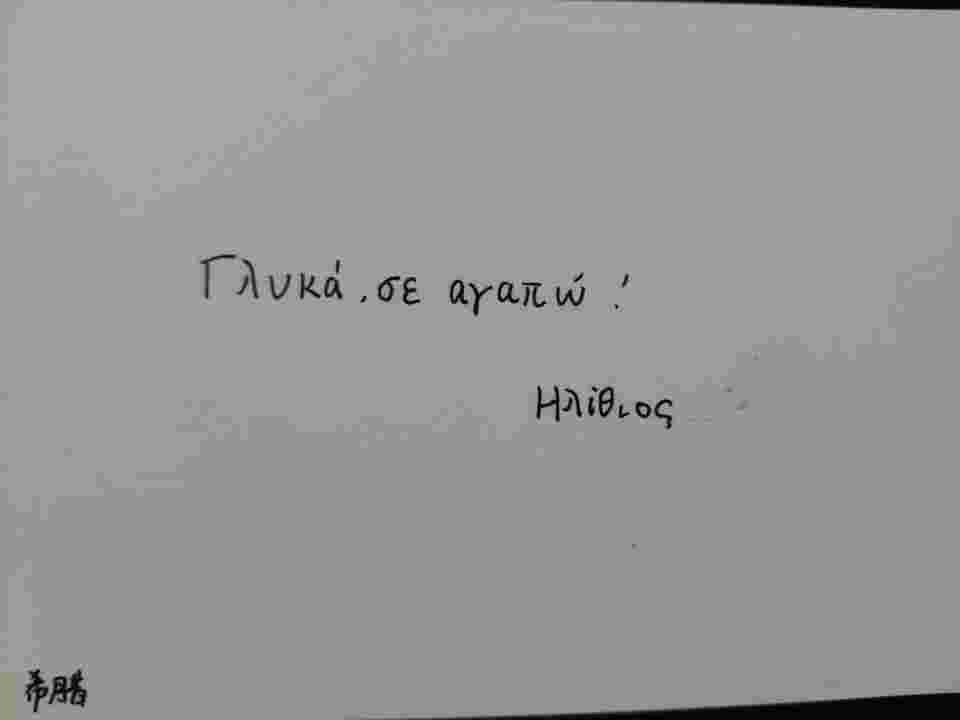 Γλυκά, σε αγαπώ!
Ηλίθιος
希腊